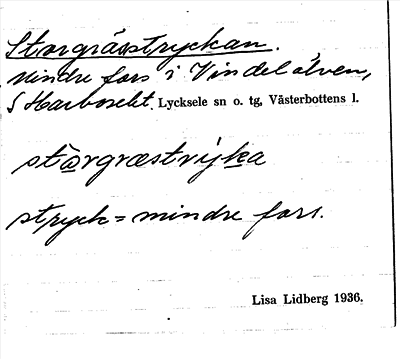 Storgrässtryckan.
mindre fors i Vindelälven,
S Harboselet. Lycksele sn o. tg, Västerbottens l.
stơrgræstrỿka
stryck = mindre fors.
Lisa Lidberg 1936.